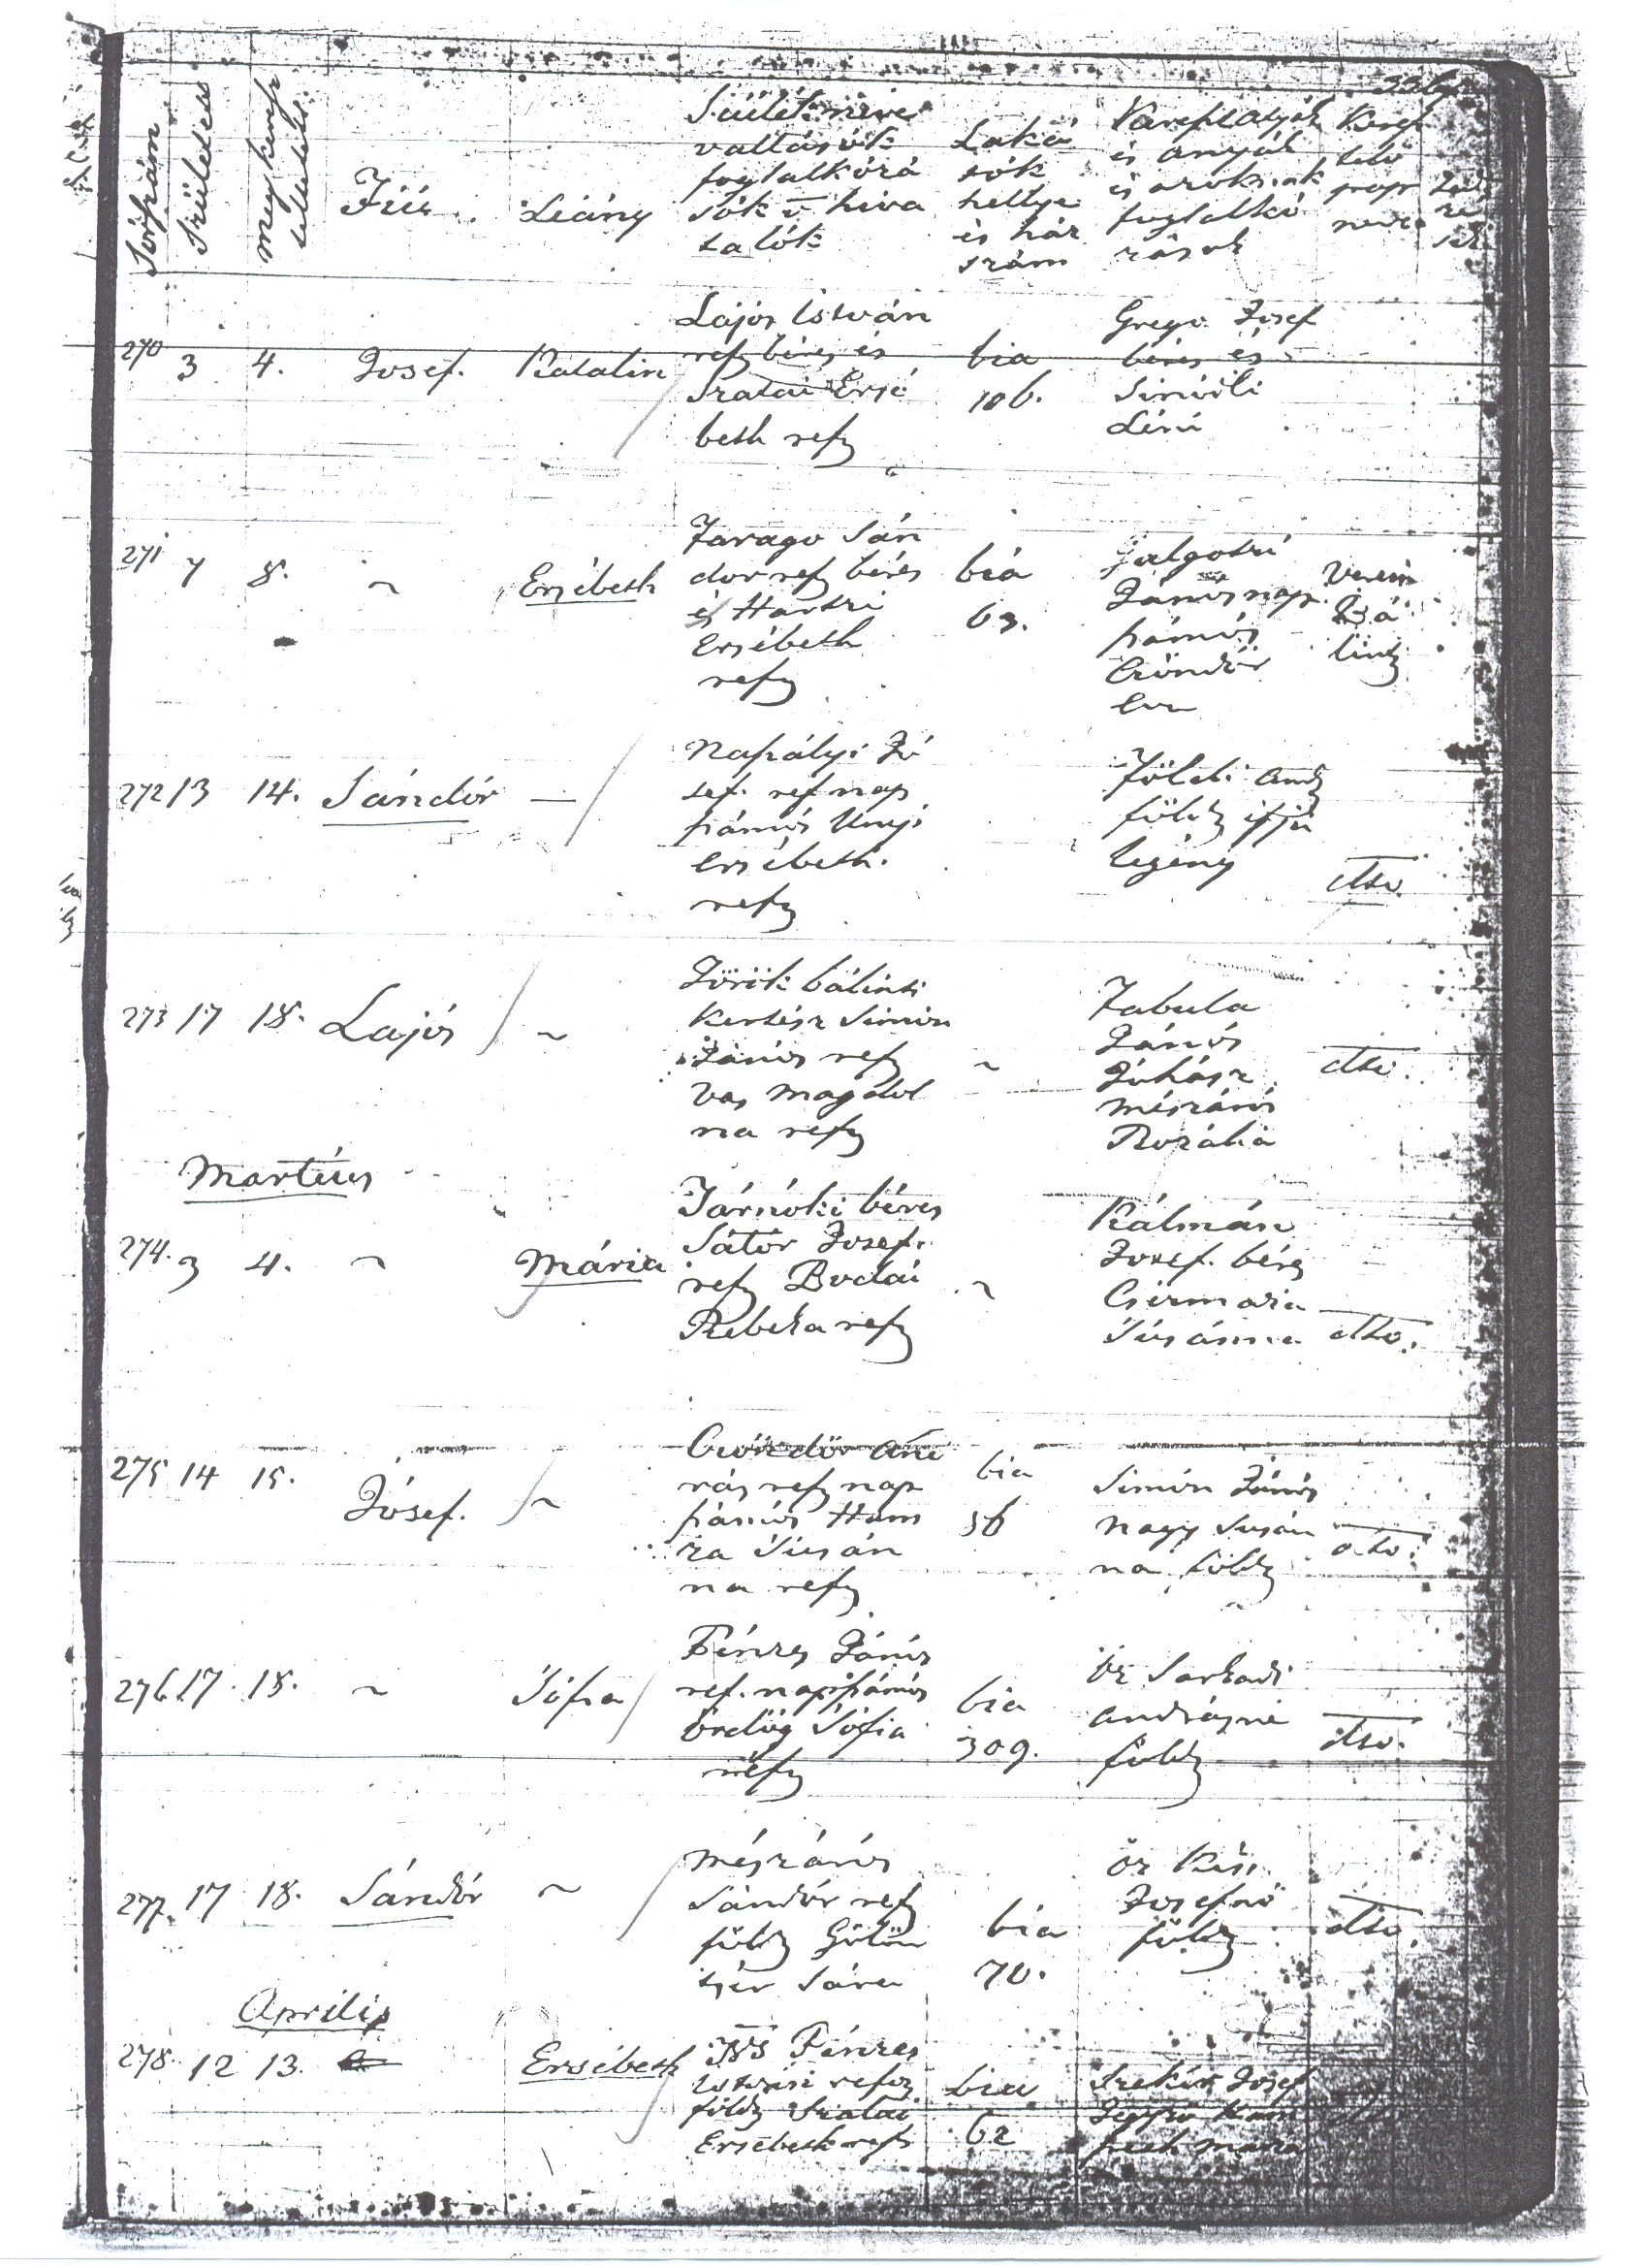 Sorszám
Születések
megkeresz
teltetés
Fiú
Leány
Szülék neve
vallások
foglalkozá
sok v hiva
talók
Laká
sok
hellye
és ház
szám
Keresztatyák
és anyák
és azoknak
foglalkó
zások
Keresz
telő
pap
neve
270 3 4. Josef. Katalin
Lajos István
ref béres és
Szalai Ersé
beth ref
bia
106.
Grego Josef
béres és
Simóili
Léni
271 7 8. ~ Ersébeth
Farago Sán
dor ref béres
és Hartzi
Ersébeth
ref
bia
63.
János nap
számos
Czöndör
Eva
272 13 14. Sándór —
Napályi Jó
sef. ref nap
számós Unyi
Ersébeth.
ref
Földi And
földz ifju
legény
dtto.
273 17 18. Lajós ~
Török bálinti
Kertész Simon
János ref
Vas Magdol
na ref
~
Tabula
Jánós
Juhász
Mészárós
Rozália
dtto.
Martius
274. 3 4. ~ Mária
Tárnoki béres
Sátor Josef.
ref Bodai
Rebeka ref
~
Kálmán
Josef. béres
Csizmazia
Susánna
dtto.
275 14 15. Jósef. ~
Czöndör And
rás ref nap
számós Ham
za Susán
na ref
bia
56
Simón Jánós
Nagy Susán
na földz
dtto.
276. 17. 18. ~ Sófia
Fénzes János
ref. napszámos
Ördög Sófia
ref
bia
309.
öz Sarkadi
Andrásné
földz
dtto.
277. 17 18. Sándór ~
Mészáros
Sándór ref
földz Gölön
tsér Sára
bia
70.
öz Kiss
Josefné
földz
dtto.
Aprilis
278. 12 13. Ersébeth
Ifjs Fénzes
István ref
földz Szalai
Ersébeth ref
bia
62
Szekér Josef